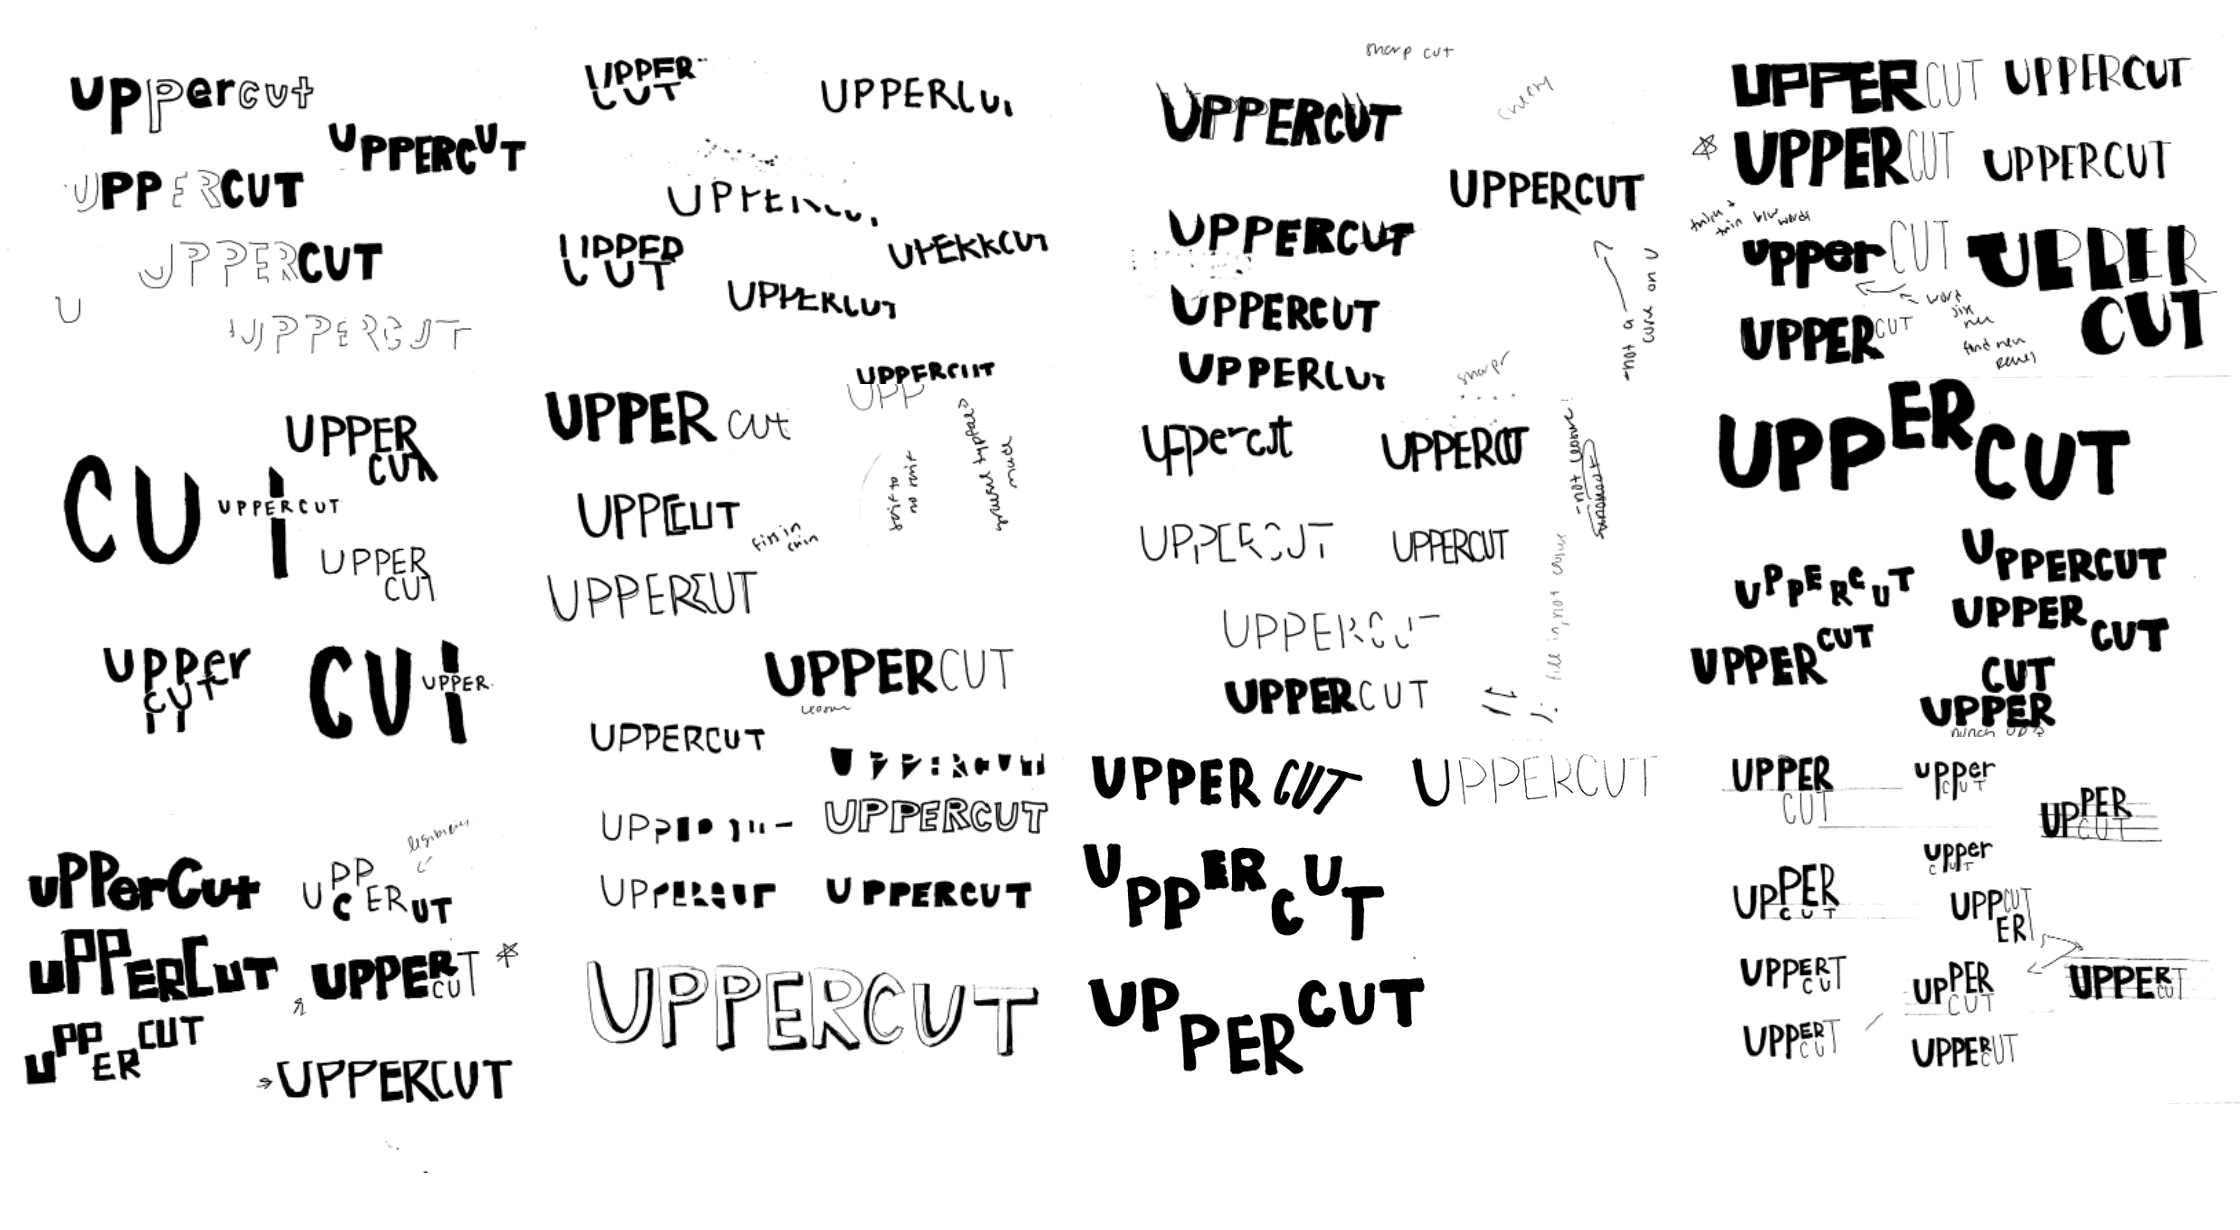 uppercut
UPPERCUT
UPPERCUT
UPPERCUT
U
UPPERCUT
UPPER
CUT
CUT
UPPERCUT
UPPER
CUT
upper
cut
CUT
UPPER
uPPerCut
legibility
UPPERCUT
uPPERCUT
UPPERCUT
uPPERCUT
UPPERCUT
UPPER
CUT
UPPERCUT
UPPERCUT
UPPER
CUT
UPPERCUT
UPPERCUT
UPPERCUT
UPP
UPPER cut
UPPECUT
UPPERCUT
UPPERCUT
UPPERCUT
UPPERCUT
UPPERCUT
UPPERCUT
UPPERCUT
UPPERCUT
UPPERCUT
UPPERCUT
sharp cut
UPPERCUT
UPPERCUT
UPPERCUT
UPPERCUT
UPPERCUT
-not a
curve on U
uppercut
UPPERCUT
UPPERCUT
UPPERCUT
UPPERCUT
fill in, not
UPPERCUT
UPPER CUT
UPPERCUT
UPPERCUT
UPPERCUT
UPPERCUT
UPPERCUT
UPPERCUT
UPPERCUT
upper CUT
UPPER
CUT
UPPER CUT
UPPERCUT
UPPERCUT
UPPERCUT
UPPER
CUT
UPPER CUT
CUT
UPPER
punch up
UPPER
CUT
upper
CUT
UPPER
CUT
upper
CUT
UPPER
CUT
UPPCUT
ER
UPPERT
CUT
UPPER
CUT
UPPERT
CUT
UPPERT
CUT
UPPERCUT